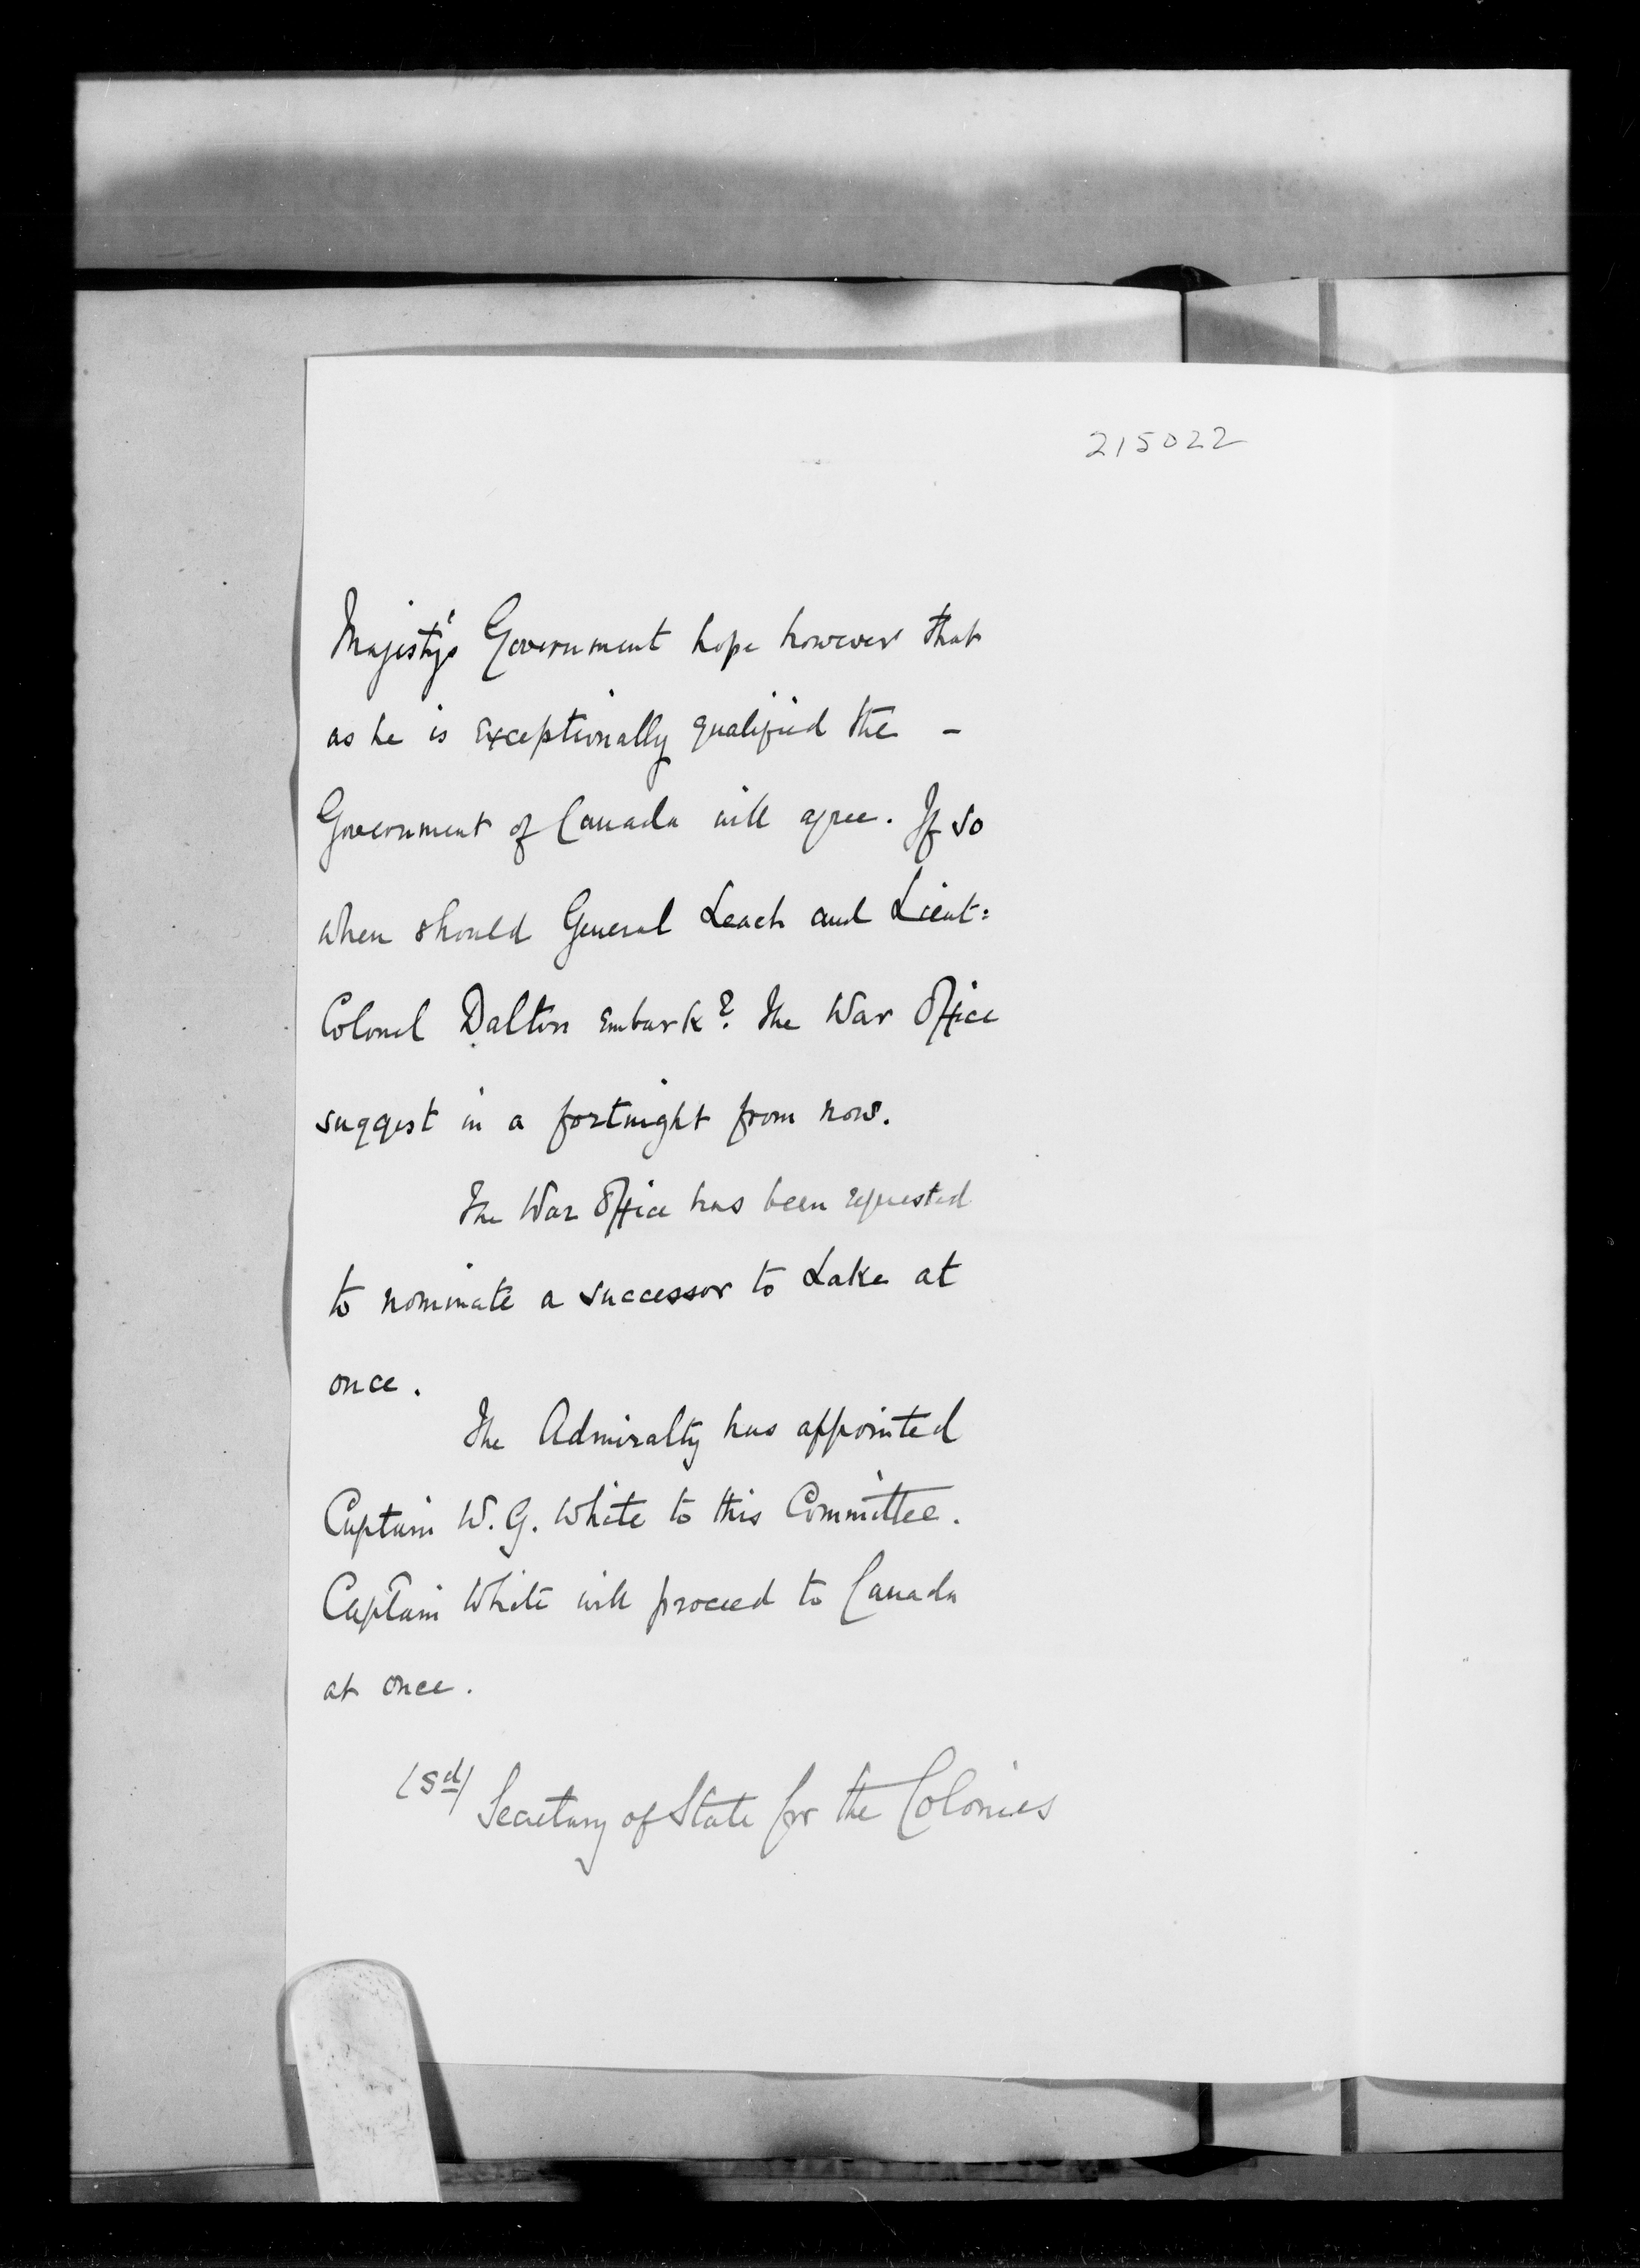 215022
Majesty's Government hope however that
as he is exceptionally qualified the -
Government of Canada will agree. If so
when should General Leach and Lieut:
Colonel Dalton embark? The War Office
suggest in a fortnight from now.
The War Office has been requested
to nominate a successor to Lake at
once.
The Admiralty has appointed
Captain W. G. White to this Committee.
Captain White will proceed to Canada
at once.
(Sd) Secretary of State for the Colonies